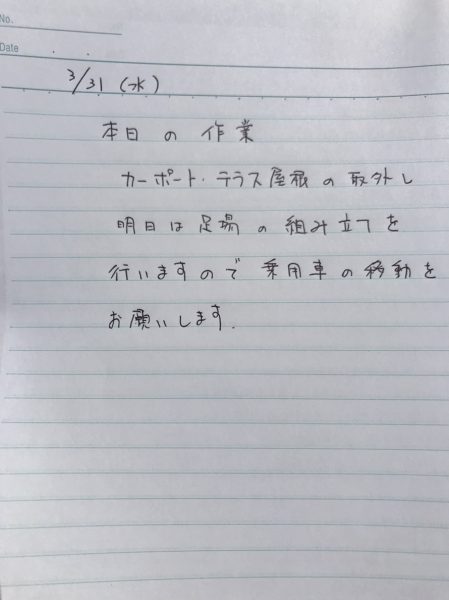 No.
Date . .
3/31 (水)
本日の作業
カーポート・テラス屋根の取外し
明日は足場の組み立てを
行いますので乗用車の移動を
お願いします.